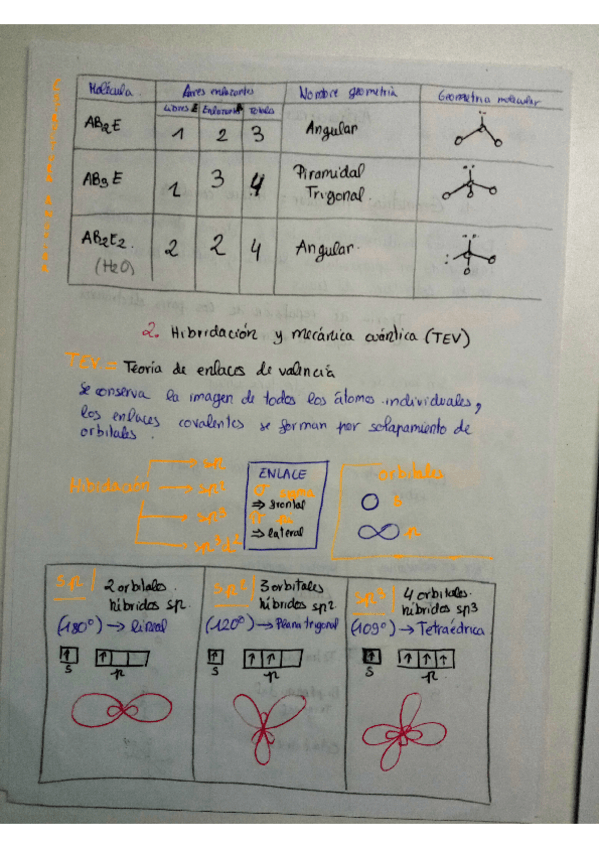 Molécula Pares enlazantes Nombre geometría Geometría molecular
Libres E Enlazante Totales
AB2E 1 2 3 Angular
AB3E 1 3 4 Piramidal
Trigonal
AB2E2. 2 2 4 Angular.
(H2O)
2. Hibridación y mecánica cuántica (TEV)
TEV = Teoría de enlaces de valencia
Se conserva la imagen de todos los átomos individuales,
los enlaces covalentes se forman por solapamiento de
orbitales.
Hibridación → sp
→ sp2
→ sp3
→ sp3d2
ENLACE
σ sigma
⇒ frontal
π pi
⇒ lateral
orbitales
s
p
sp | 2 orbitales.
híbridos sp.
(180º) → lineal
s p
sp2 | 3 orbitales
híbridos sp2.
(120º) → Plana trigonal
s p
sp3 | 4 orbitales.
híbridos sp3
(109º) → Tetraédrica
s p